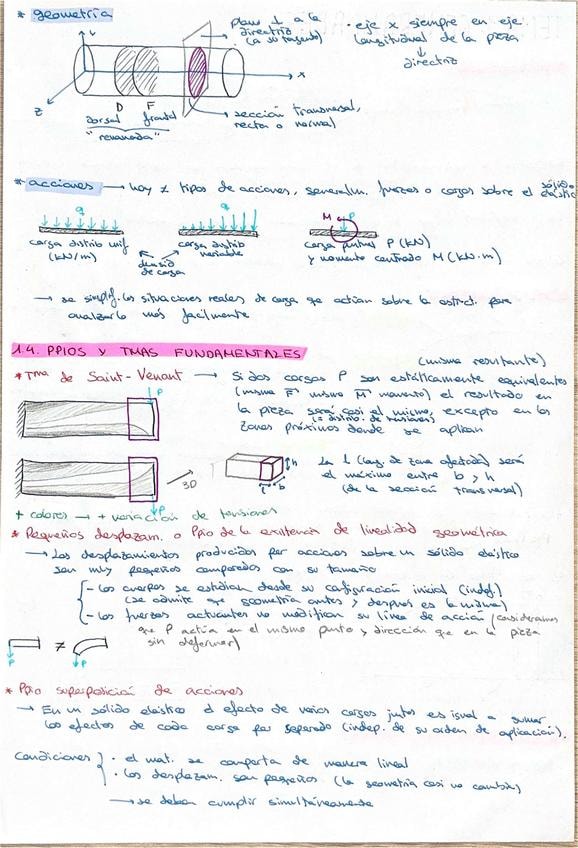 * geometría
y
x
z
D F
dorsal frontal
"rebanada"
plano ⊥ a la
directriz
(a su tangente)
sección transversal,
recta o normal
· eje x siempre en eje
longitudinal de la pieza
↓
directriz
* acciones → hay ≠ tipos de acciones, generalm. fuerzas o cargas sobre el sólido
elástico
q
carga distrib unif
(kN/m)
q
carga distrib
variable
densid
de carga
M P
carga puntual P (kN)
y momento centrado M (kN·m)
→ se simplif. los situaciones reales de carga que actúan sobre la estruct. para
analizarlo más facilmente
1.4. PPIOS Y TMAS FUNDAMENTALES
(misma resultante)
* Tma de Saint-Venant → Si dos cargas P son estáticamente equivalentes
(misma F mismo M momento) el resultado en
la pieza será casi el mismo, excepto en las
(= distrib. de tensiones)
zonas próximas donde se aplican
P
P
3D
h
l b
La l (long. de zona afectada) será
el máximo entre b y h
(de la sección transversal)
+ colores → + variación de tensiones
* Pequeños desplazam. o Ppio de la existencia de linealidad geométrica
→ Los desplazamientos producidos por acciones sobre un sólido elástico
son muy pequeños comparados con su tamaño
- Los cuerpos se estudian desde su configuración inicial (indef)
(se admite que geometría antes y después es la misma)
- Las fuerzas actuantes no modifican su línea de acción (consideramos
que P actúa en el mismo punto y dirección que en la pieza
sin deformar)
P ≠ P
* Ppio superposición de acciones
→ En un sólido elástico el efecto de varias cargas juntas es igual a sumar
los efectos de cada carga por separado (indep. de su orden de aplicación).
Condiciones } · el mat. se comporta de manera lineal
· los desplazam. son pequeños (la geometría casi no cambia)
→ se deben cumplir simultáneamente